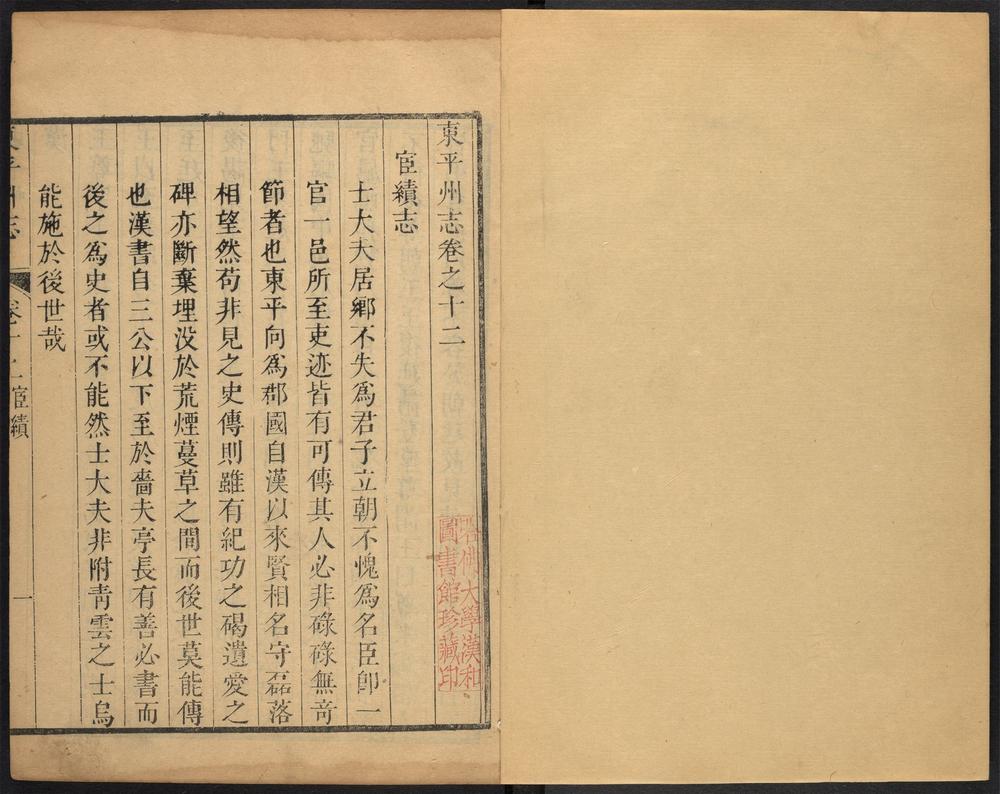 東平州志卷之十二
宦績志
士大夫居鄉不失爲君子立朝不愧爲名臣卽一
官一邑所至吏迹皆有可傳其人必非碌碌無奇
節者也東平向爲郡國自漢以來賢相名守磊落
相望然苟非見之史傳則雖有紀功之碣遺愛之
碑亦斷棄埋没於荒煙蔓草之間而後世莫能傳
也漢書自三公以下至於嗇夫亭長有善必書而
後之爲史者或不能然士大夫非附靑雲之士烏
能施於後世哉
東平州志 卷十二宦績 一
哈佛大學漢和
圖書館珍藏印